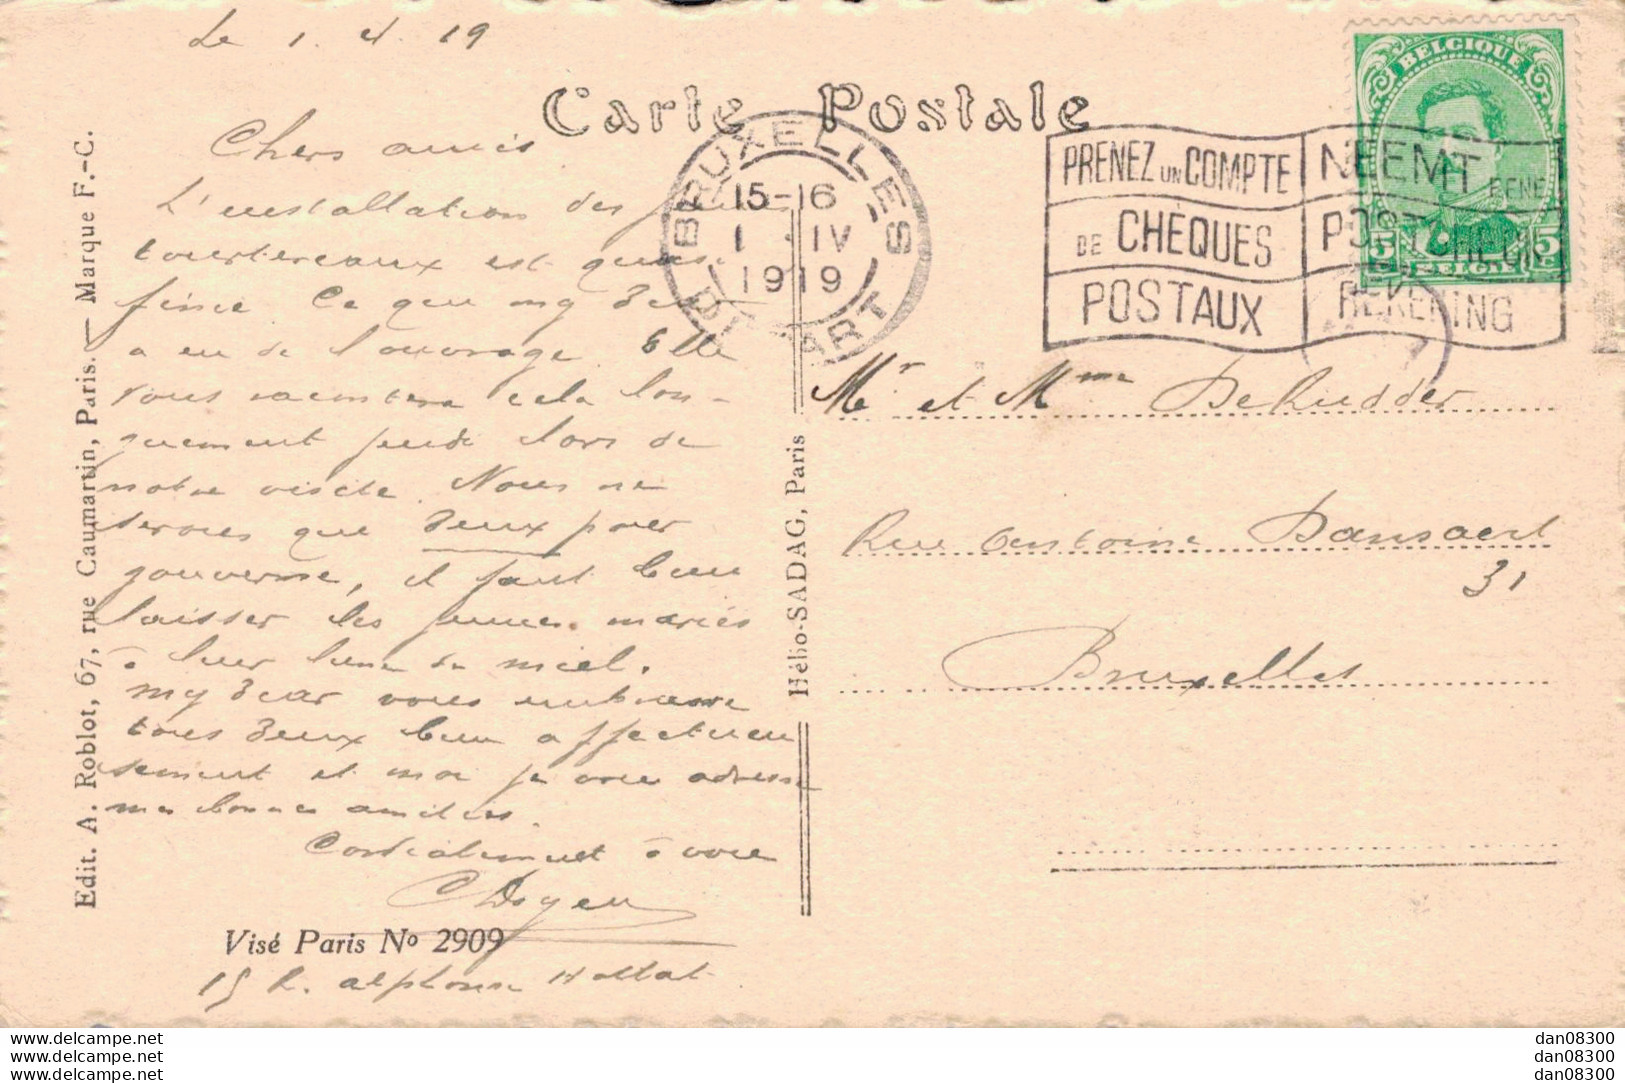 Le 1. 4. 19
Carte Postale
Chers amis
L'installation des jeunes
tourtereaux est quasi
finie. Ce que my Dear
a eu de l'ouvrage. Elle
vous racontera cela lon-
guement jeudi lors de
notre visite. Nous ne
serons que deux pour
gouverne, il faut bien
laisser les jeunes mariés
à leur lune de miel.
my Dear vous embrasse
tous deux bien affectueu
sement et moi je vous adresse
mes bonnes amitiés.
Cordialement à vous
Visé Paris No 2909
15 R. Alphonse Hottat
Edit. A. Roblot, 67, rue Caumartin, Paris. — Marque F.-C.
Hélio-SADAG, Paris
BRUXELLES
15-16
1 IV
1919
DEPART
PRENEZ UN COMPTE
DE CHÈQUES
POSTAUX
NEEMT EENE
POSTCHECK
REKENING
BELGIQUE
5 BELGIË 5
Mr et Mme De Ridder
Rue Antoine Dansaert
31
Bruxelles
www.delcampe.net
www.delcampe.net
www.delcampe.net
dan08300
dan08300
dan08300